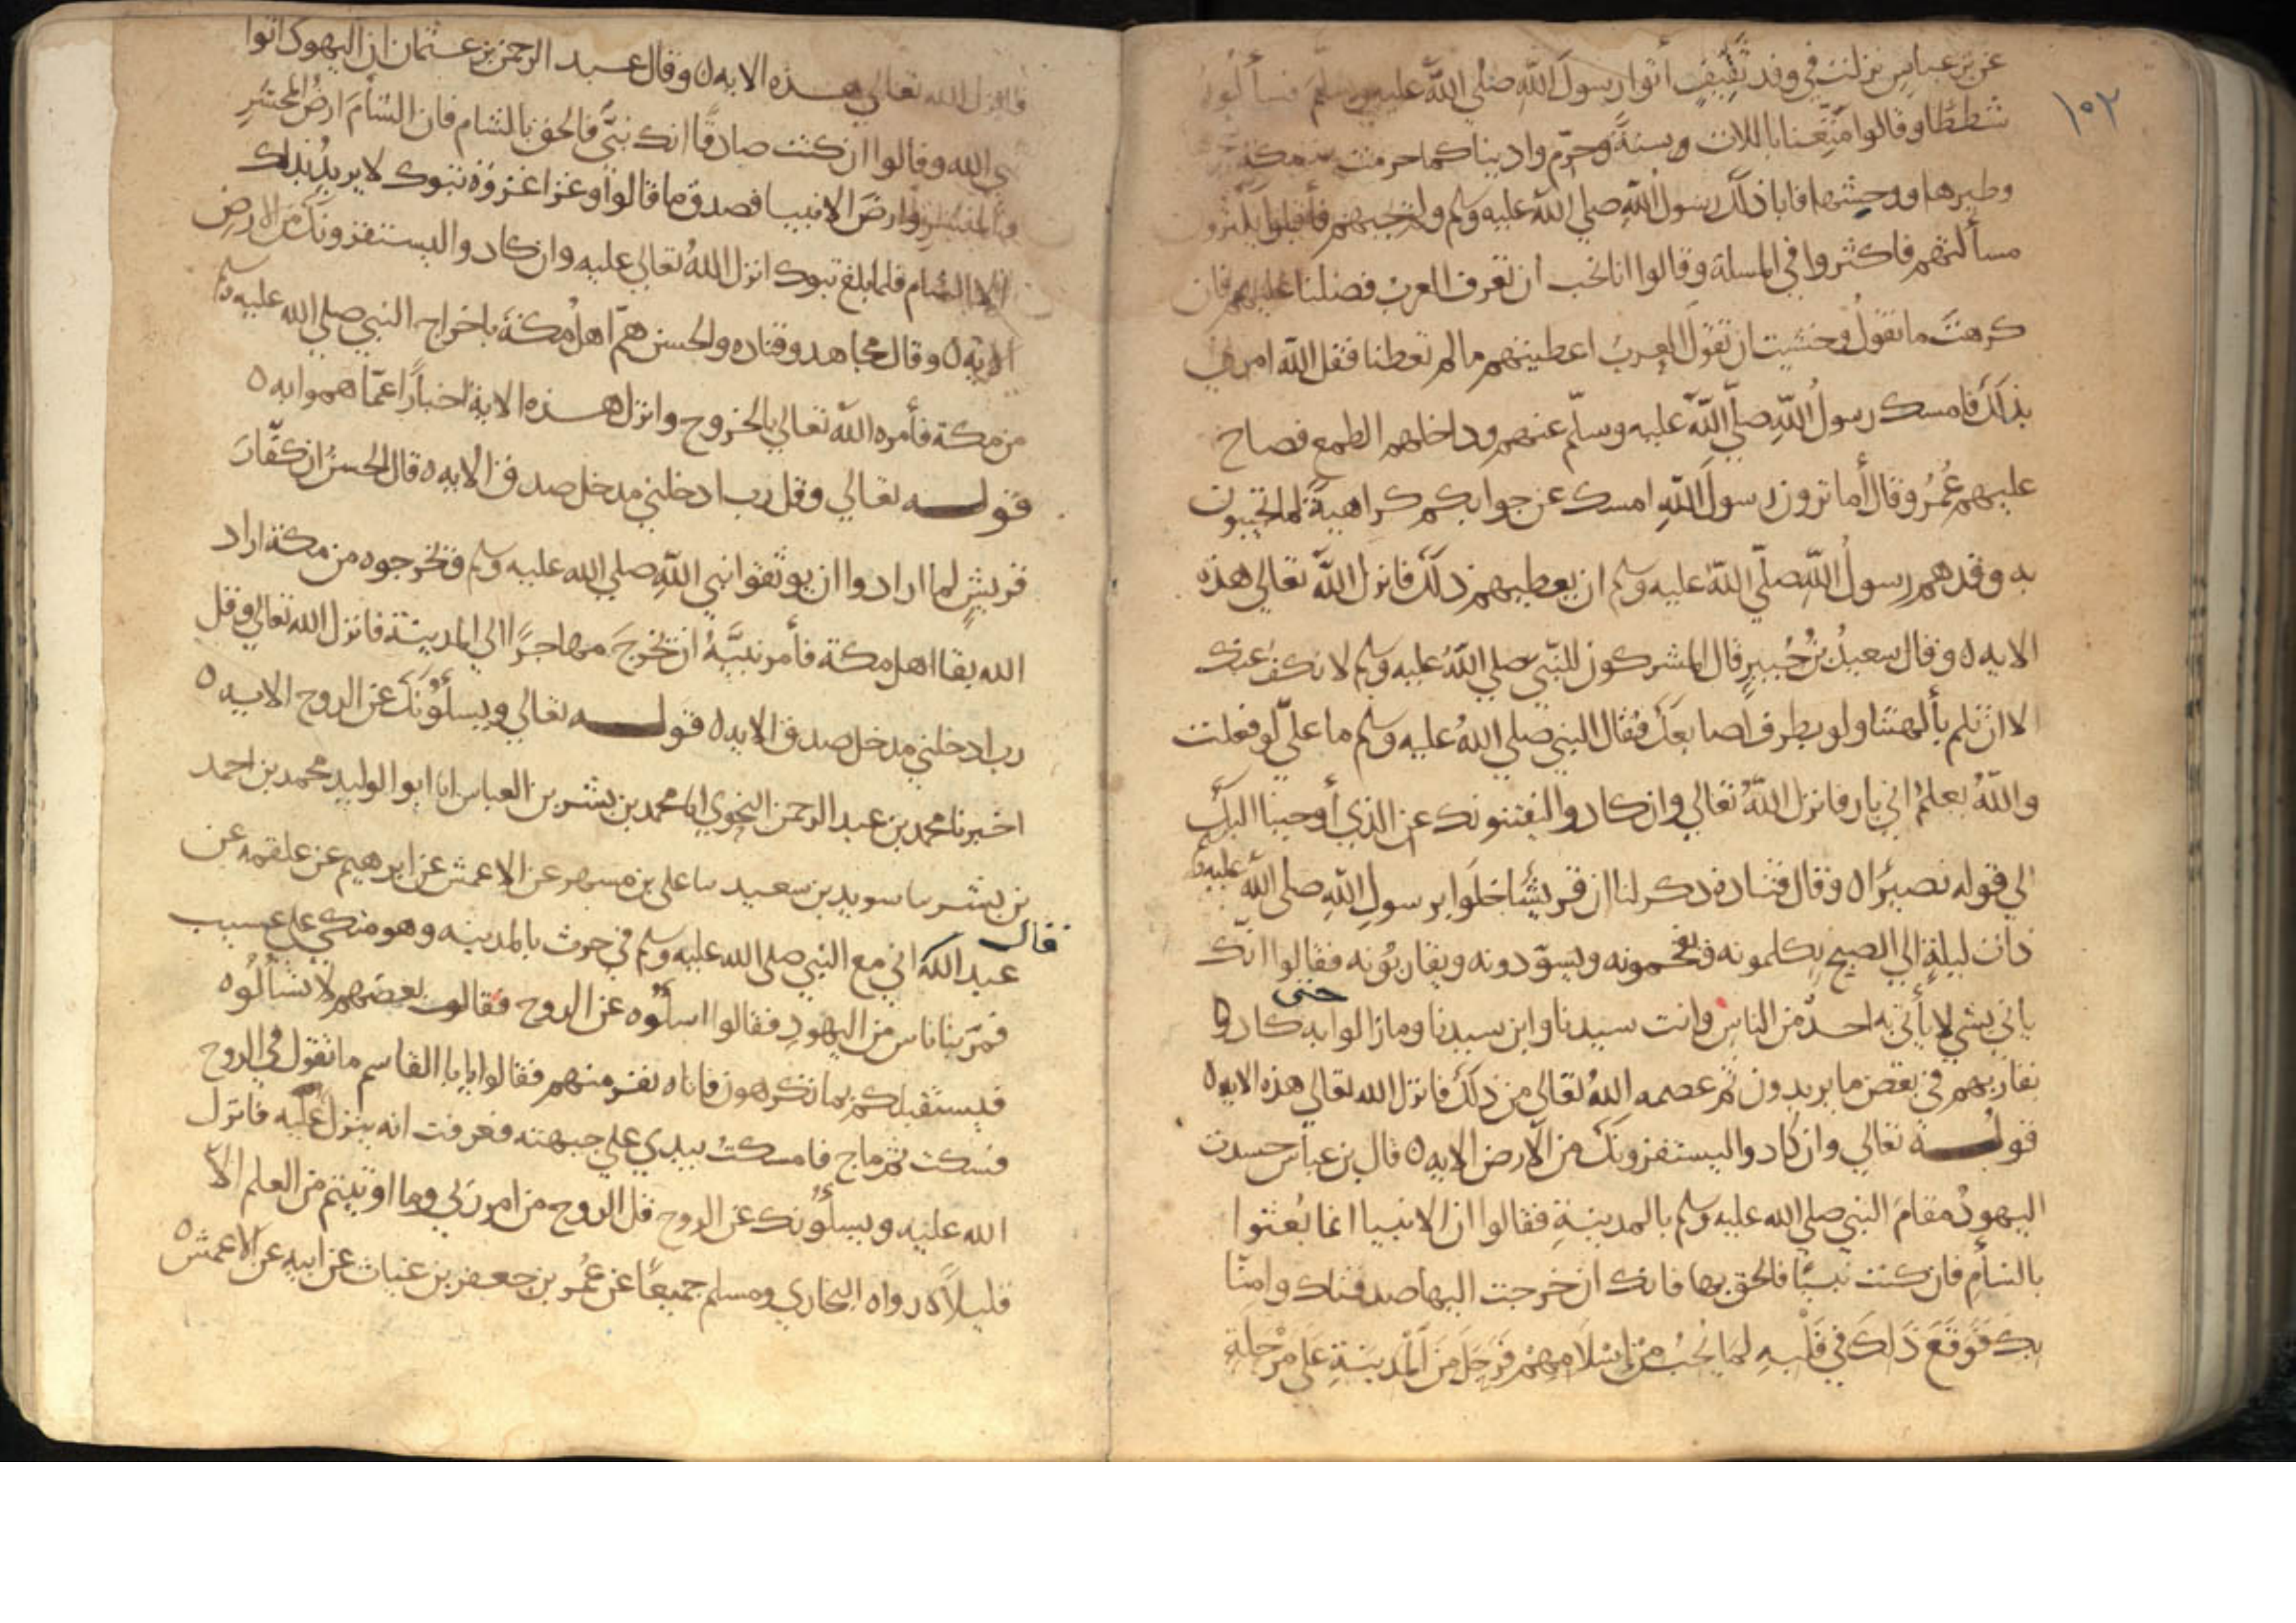 ١٥٢
عن بن عباس نزلت في وفد ثقيف أتوا رسول الله صلى الله عليه وسلم فسألوه
شططا وقالوا متعنا باللات سنة وحرم وادينا كما حرمت مكة
وطيرها ووحشها فابا ذلك رسول الله صلي الله عليه وسلم ولم يجبهم فأقبلوا يكثرون
مسألتهم فاكثروا في المسلة وقالوا انا نحب أن تعرف العرب فضلنا عليهم فان
كرهت ما نقول وخشيت ان تقول العرب اعطيتهم ما لم تعطنا فقل الله امرني
بذلك فامسك رسول الله صلي الله عليه وسلم عنهم وداخلهم الطمع فصاح
عليهم عمر وقال أما ترون رسول الله امسك عن جوابكم كراهية لما تجيبون
به وقد هم رسول الله صلي الله عليه وسلم ان يعطيهم ذلك فانزل الله تعالي هذه
الايه ٥ وقال سعيد بن جبير قال المشركون للنبي صلي الله عليه وسلم لا نكف عنك
الا ان تلم بألهتنا ولو بطرف اصابعك فقال النبي صلي الله عليه وسلم ما علي لو فعلت
والله يعلم اني بار فانزل الله تعالي وان كادوا ليفتنونك عن الذي أوحينا اليك
الي قوله نصيرا ٥ وقال قتادة ذكر لنا ان قريشا خلوا برسول الله صلي الله عليه
ذات ليلة الي الصبح يكلمونه ويفخمونه ويسودونه ويقاربونه فقالوا انك
تاتي بشي لا يأتي به احد من الناس وانت سيدنا وابن سيدنا وما زالوا به حتى كاد
يقاربهم في بعض ما يريدون ثم عصمه الله تعالي من ذلك فانزل الله تعالي هذه الايه ٥
قوله تعالي وان كادوا ليستفزونك من الارض الايه ٥ قال بن عباس حسدت
اليهود مقام النبي صلي الله عليه وسلم بالمدينة فقالوا ان الانبيا انما بعثوا
بالشأم فان كنت نبيا فالحق بها فانك ان خرجت اليها صدقناك وامنا
بك فوقع ذلك في قلبه لما يحب من إسلامهم فرحل من المدينة علي مرحلة
فانزل الله تعالي هذه الايه ٥ وقال عبد الرحمن بن عثمان ان اليهود اتوا
نبي الله وقالوا ان كنت صادقا انك نبي فالحق بالشام فان الشأم ارض المحشر
والمنشر وارض الانبيا فصدق ما قالوا وغزا غزوة تبوك لا يريد بذلك
الا الشام فلما بلغ تبوك انزل الله تعالي عليه وان كادوا ليستفزونك من الارض
الايه ٥ وقال مجاهد وقتاده والحسن هم أهل مكة باخراج النبي صلي الله عليه وسلم
من مكة فأمره الله تعالي بالخروج وانزل هذه الاية اخبارا عما هموا به ٥
قوله تعالي وقل رب ادخلني مدخل صدق الايه ٥ قال الحسن ان كفار
قريش لما ارادوا ان يوثقوا نبي الله صلي الله عليه وسلم فتخرجوه من مكة اراد
الله بقا اهل مكة فأمر نبيه ان يخرج مهاجرا الي المدينة فانزل الله تعالي وقل
رب ادخلني مدخل صدق الايه ٥ قوله تعالي ويسألونك عن الروح الايه ٥
اخبرنا محمد بن عبد الرحمن النحوي انا محمد بن بشر بن العباس انا ابو الوليد محمد بن احمد
بن بشر سا سويد بن سعيد سا علي بن مسهر عن الاعمش عن ابرهيم عن علقمه عن
عبد الله قال اني مع النبي صلي الله عليه وسلم في حرث بالمدينه وهو متكي علي عسيب
فمر بنا ناس من اليهود فقالوا اسألوه عن الروح فقال بعضهم لا تسألوه
فيستقبلكم بما تكرهون فاتاه نفر منهم فقالوا يا ابا القاسم ما تقول في الروح
فسكت ثم ماج فامسكت بيدي علي جبهته فعرفت انه ينزل عليه فانزل
الله عليه ويسألونك عن الروح قل الروح من امر ربي وما اوتيتم من العلم الا
قليلا ٥ رواه البخاري ومسلم جميعا عن عمر بن جعفر بن غياث عن ابيه عن الاعمش ٥